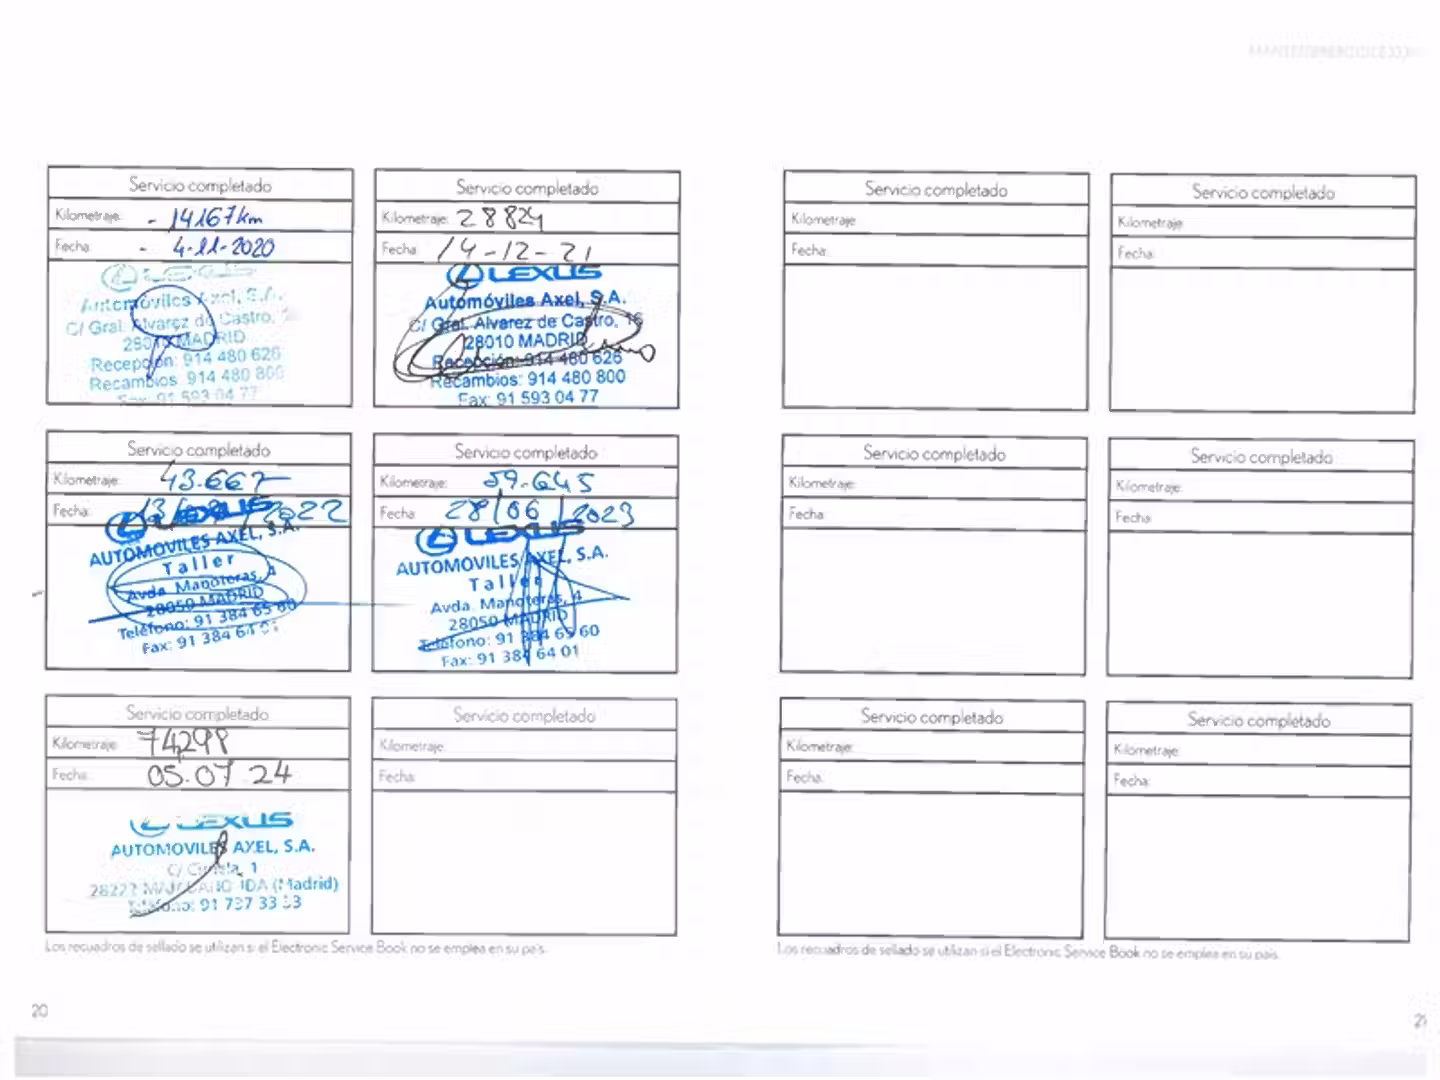 Servicio completado
Kilometraje: - 14167km
Fecha: - 4-11-2020
LEXUS
Automóviles Axel, S.A.
C/ Gral. Alvarez de Castro,
28010 MADRID
Recepción: 914 480 626
Recambios: 914 480 800
Fax: 91 593 04 77
Servicio completado
Kilometraje: 28824
Fecha: 14-12-21
LEXUS
Automóviles Axel, S.A.
C/ Gral. Alvarez de Castro, 16
28010 MADRID
Recepción: 914 480 626
Recambios: 914 480 800
Fax: 91 593 04 77
Servicio completado
Kilometraje: 43.667
Fecha: 2022
LEXUS
AUTOMOVILES AXEL, S.A.
Taller
Avda. Manoteras, 4
28050 MADRID
Teléfono: 91 384 65 60
Fax: 91 384 64 01
Servicio completado
Kilometraje: 59.645
Fecha: 28/06/2023
LEXUS
AUTOMOVILES AXEL, S.A.
Taller
Avda. Manoteras, 4
28050 MADRID
Teléfono: 91 384 65 60
Fax: 91 384 64 01
Servicio completado
Kilometraje: 74298
Fecha: 05.07.24
LEXUS
AUTOMOVILES AXEL, S.A.
C/ 1
28222 MAJADAHONDA (Madrid)
Teléfono: 91 737 33 33
Servicio completado
Kilometraje:
Fecha:
Los recuadros de sellado se utilizan si el Electronic Service Book no se emplea en su país.
20
Servicio completado
Kilometraje:
Fecha:
Servicio completado
Kilometraje:
Fecha:
Servicio completado
Kilometraje:
Fecha:
Servicio completado
Kilometraje:
Fecha:
Servicio completado
Kilometraje:
Fecha:
Servicio completado
Kilometraje:
Fecha:
Los recuadros de sellado se utilizan si el Electronic Service Book no se emplea en su país.